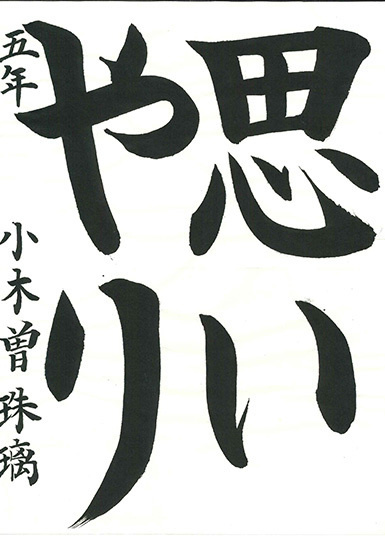 思い
やり
五年 小木曽珠璃